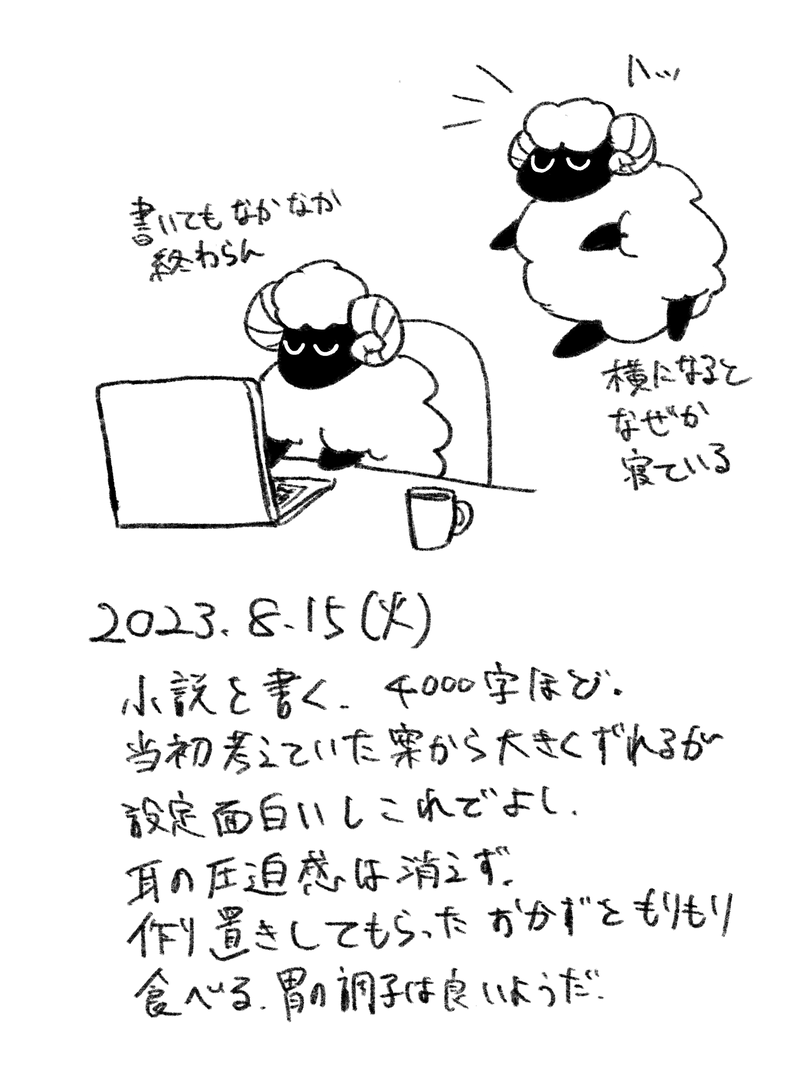 ハッ
書いてもなかなか
終わらん
横になると
なぜか
寝ている
2023.8.15(火)
小説を書く. 4000字ほど.
当初考えていた案から大きくずれるが
設定面白いしこれでよし.
耳の圧迫感は消えず.
作り置きしてもらったおかずをもりもり
食べる.胃の調子は良いようだ.